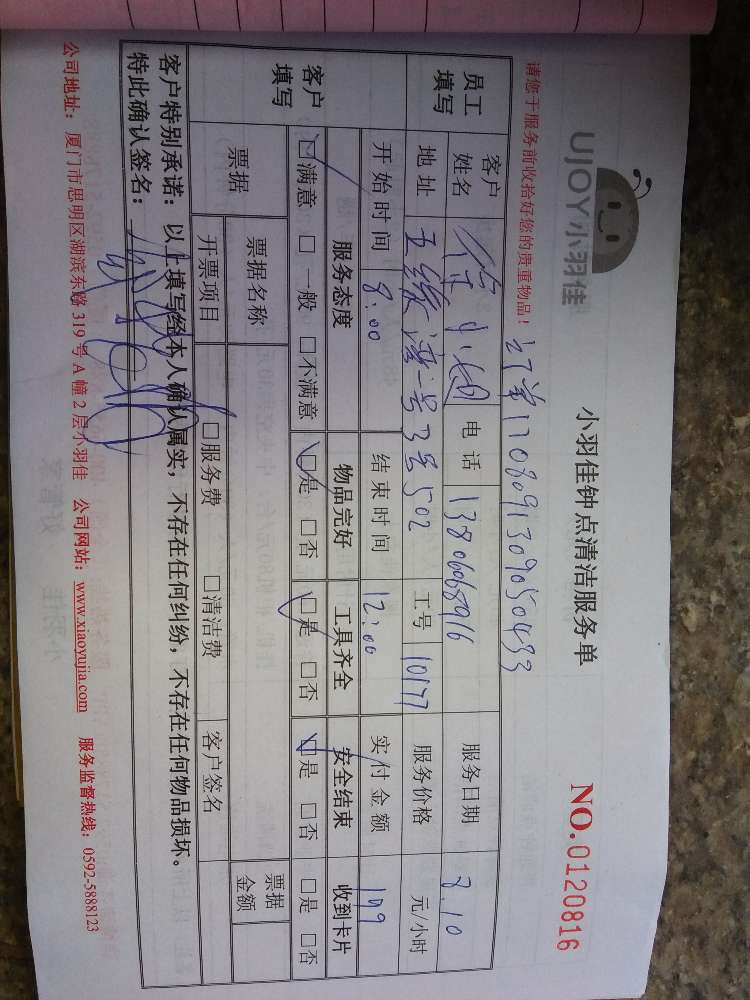 UJOY小羽佳
小羽佳钟点清洁服务单
NO.0120816
请您于服务前收拾好您的贵重物品!
订单1708091309050433
员工填写 客户姓名 徐小姐 电话 13806068916 服务日期 8.10
地址 五缘湾一号3号502 工号 10177 服务价格 元/小时
开始时间 8.00 结束时间 12:00 实付金额 199
客户填写 服务态度 物品完好 工具齐全 安全结束 收到卡片
☑满意 □一般 □不满意 ☑是 □否 ☑是 □否 ☑是 □否 □是 □否
票据 票据名称 票据金额
开票项目 □服务费 □清洁费 客户签名
客户特别承诺:以上填写经本人确认属实,不存在任何纠纷,不存在任何物品损坏。
特此确认签名:
公司地址:厦门市思明区湖滨东路 319 号 A 幢 2 层小羽佳 公司网站:www.xiaoyujia.com 服务监督热线:0592-5888123